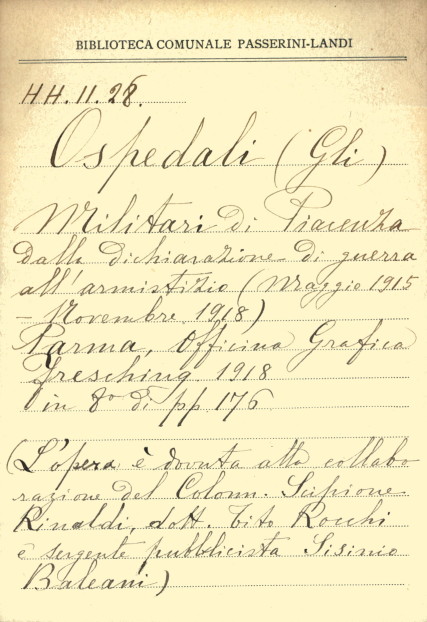 BIBLIOTECA COMUNALE PASSERINI-LANDI
HH.II.28.
Ospedali (Gli)
Militari di Piacenza
dalla dichiarazione di guerra
all'armistizio (Maggio 1915
- Novembre 1918)
Parma, Officina Grafica
Fresching 1918
in 8° di pp 176
(L'opera è dovuta alla collabo
razione del Colonn. Scipione
Rinaldi, dott. Tito Rocchi
e sergente pubblicista Sisinio
Baleani)